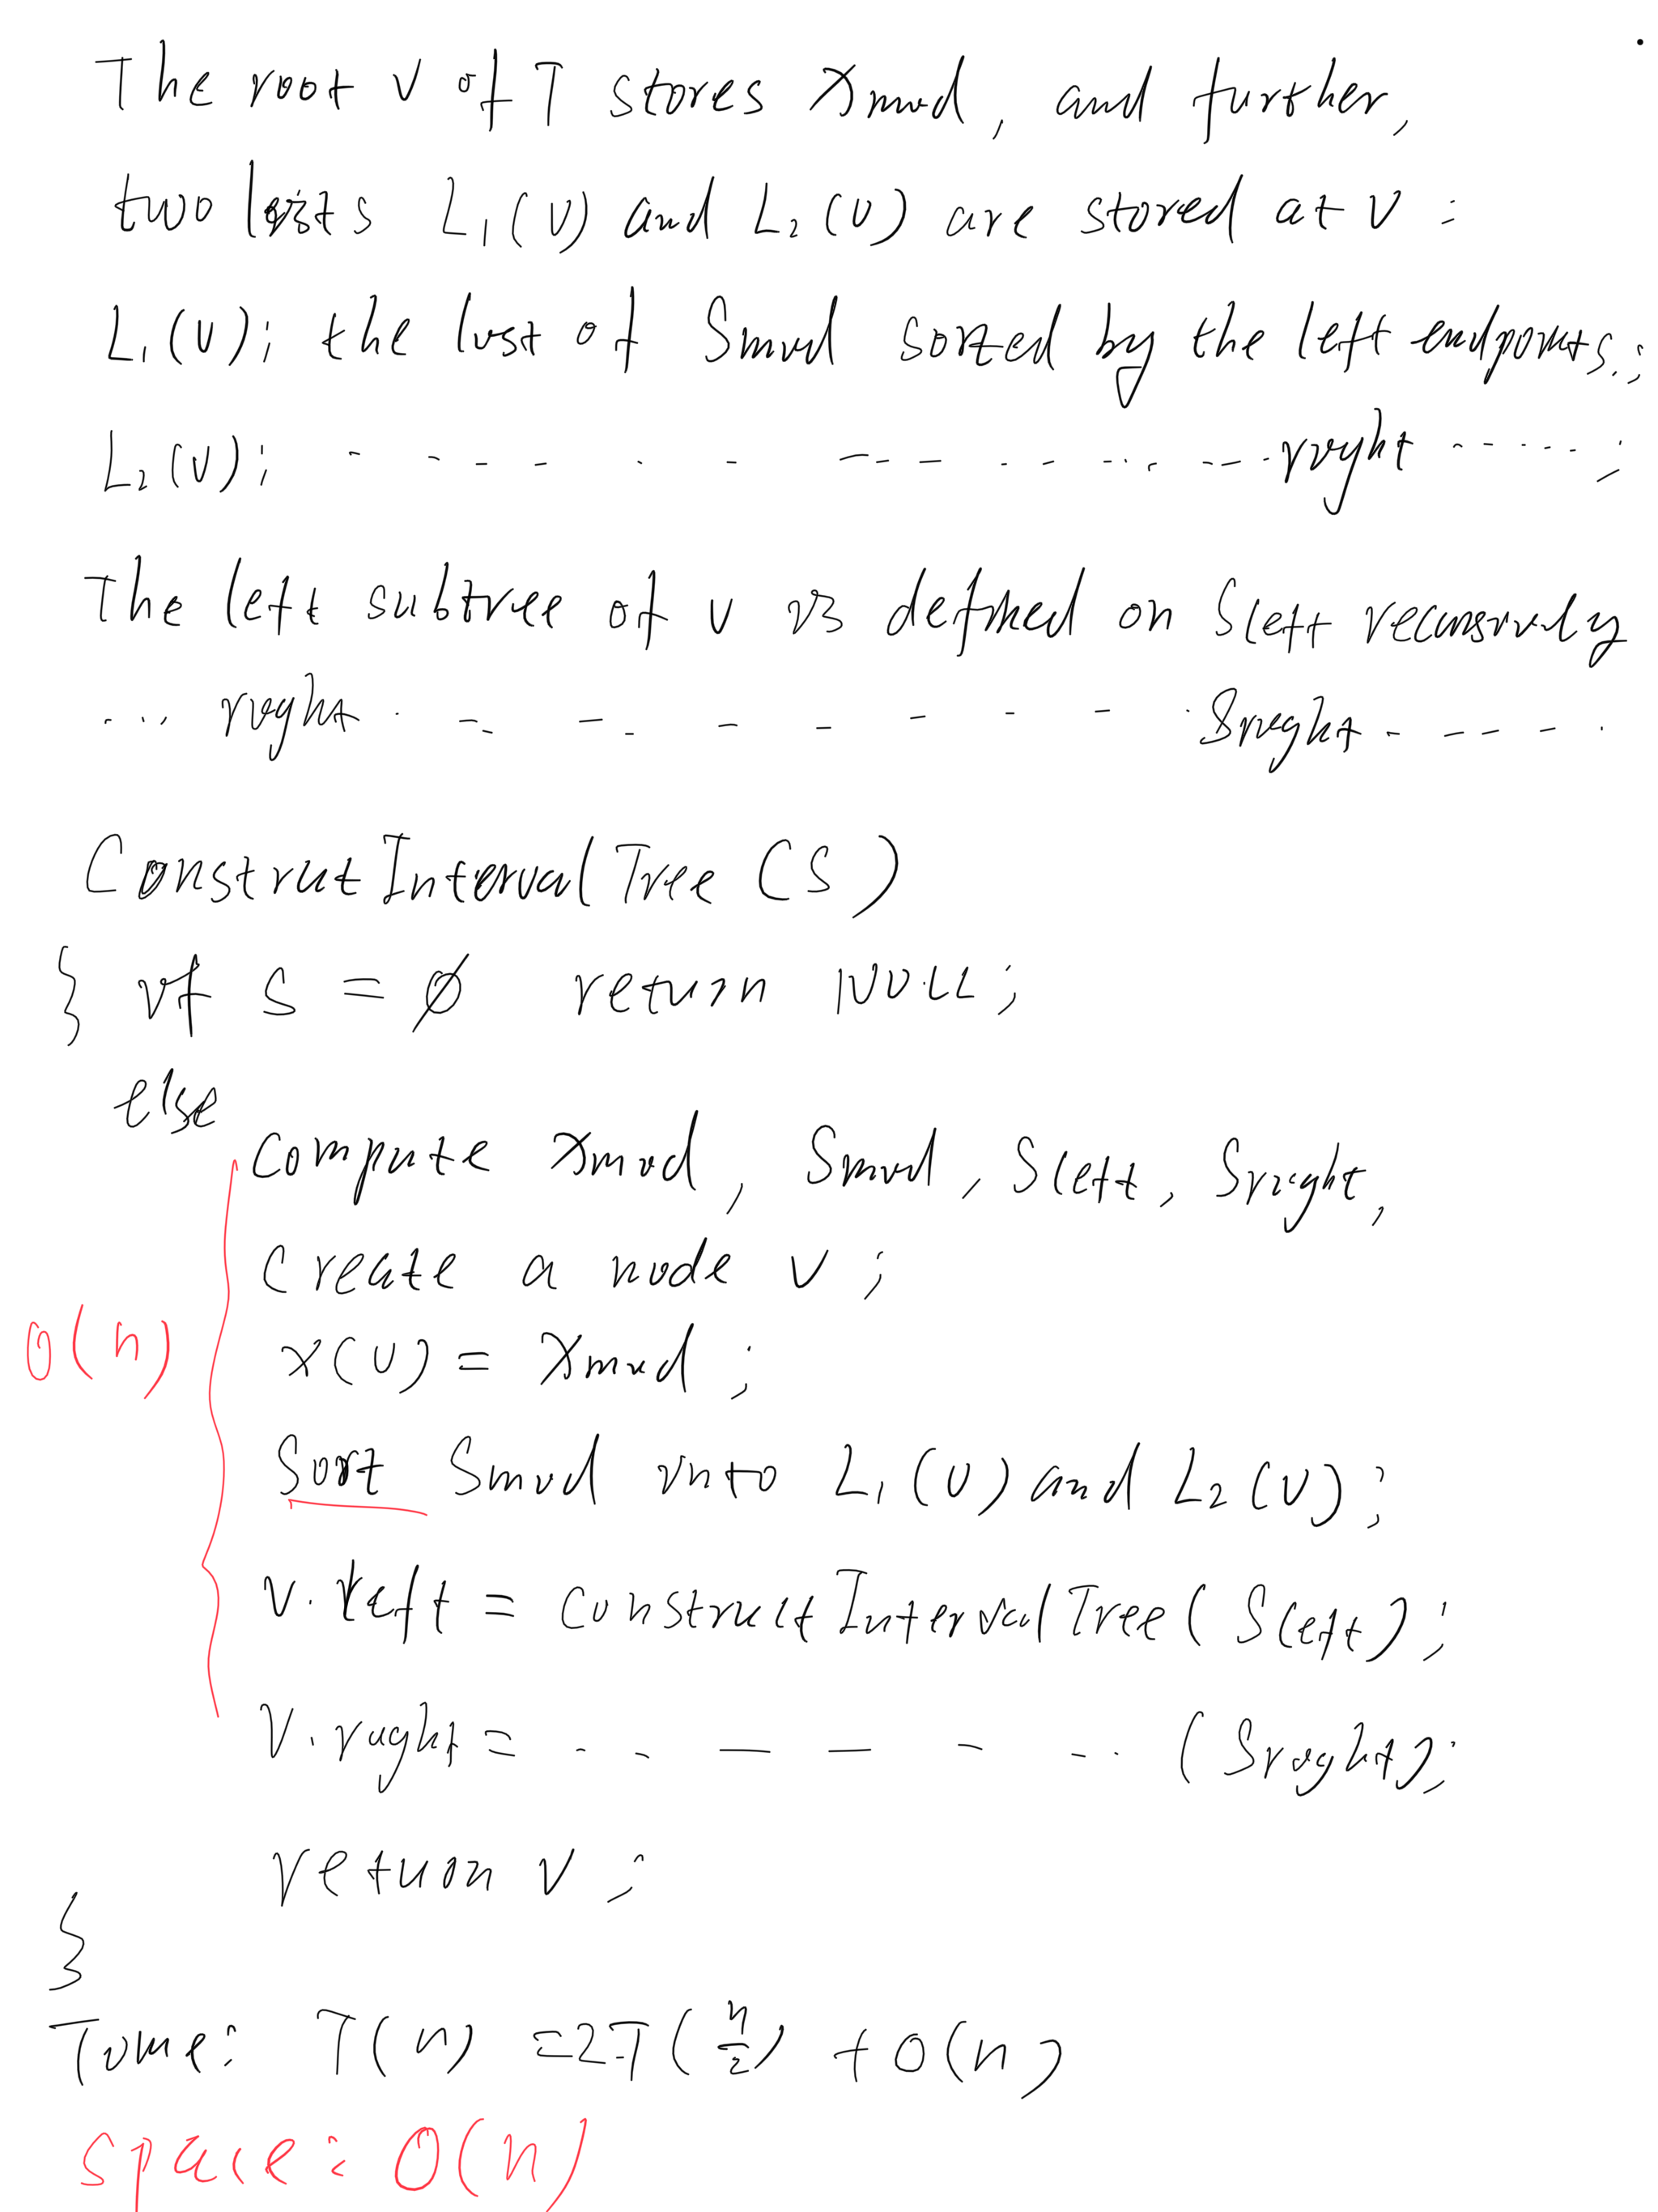 The root v of T stores Xmid, and further,
two lists L₁(v) and L₂(v) are stored at v :
L₁(v); the list of Smid sorted by the left endpoints.;
L₂(v); - - - - - - - - - - - - - - - - right - - - - - ;
The left subtree of v is defined on Sleft recursively
... right - - - - - - - - - Sright - - - - -
ConstrutIntervalTree (S)
{ if S = ∅ return NULL;
else
compute Xmid, Smid, Sleft, Sright,
create a node v ;
O(n)
x(v) = Xmid ;
Sort Smid into L₁(v) and L₂(v) ;
v.left = constructIntervalTree(Sleft);
v.right = - - - - - - - (Sright);
return v ;
}
Time: T(n) = 2T(n/2) + O(n)
space: O(n)